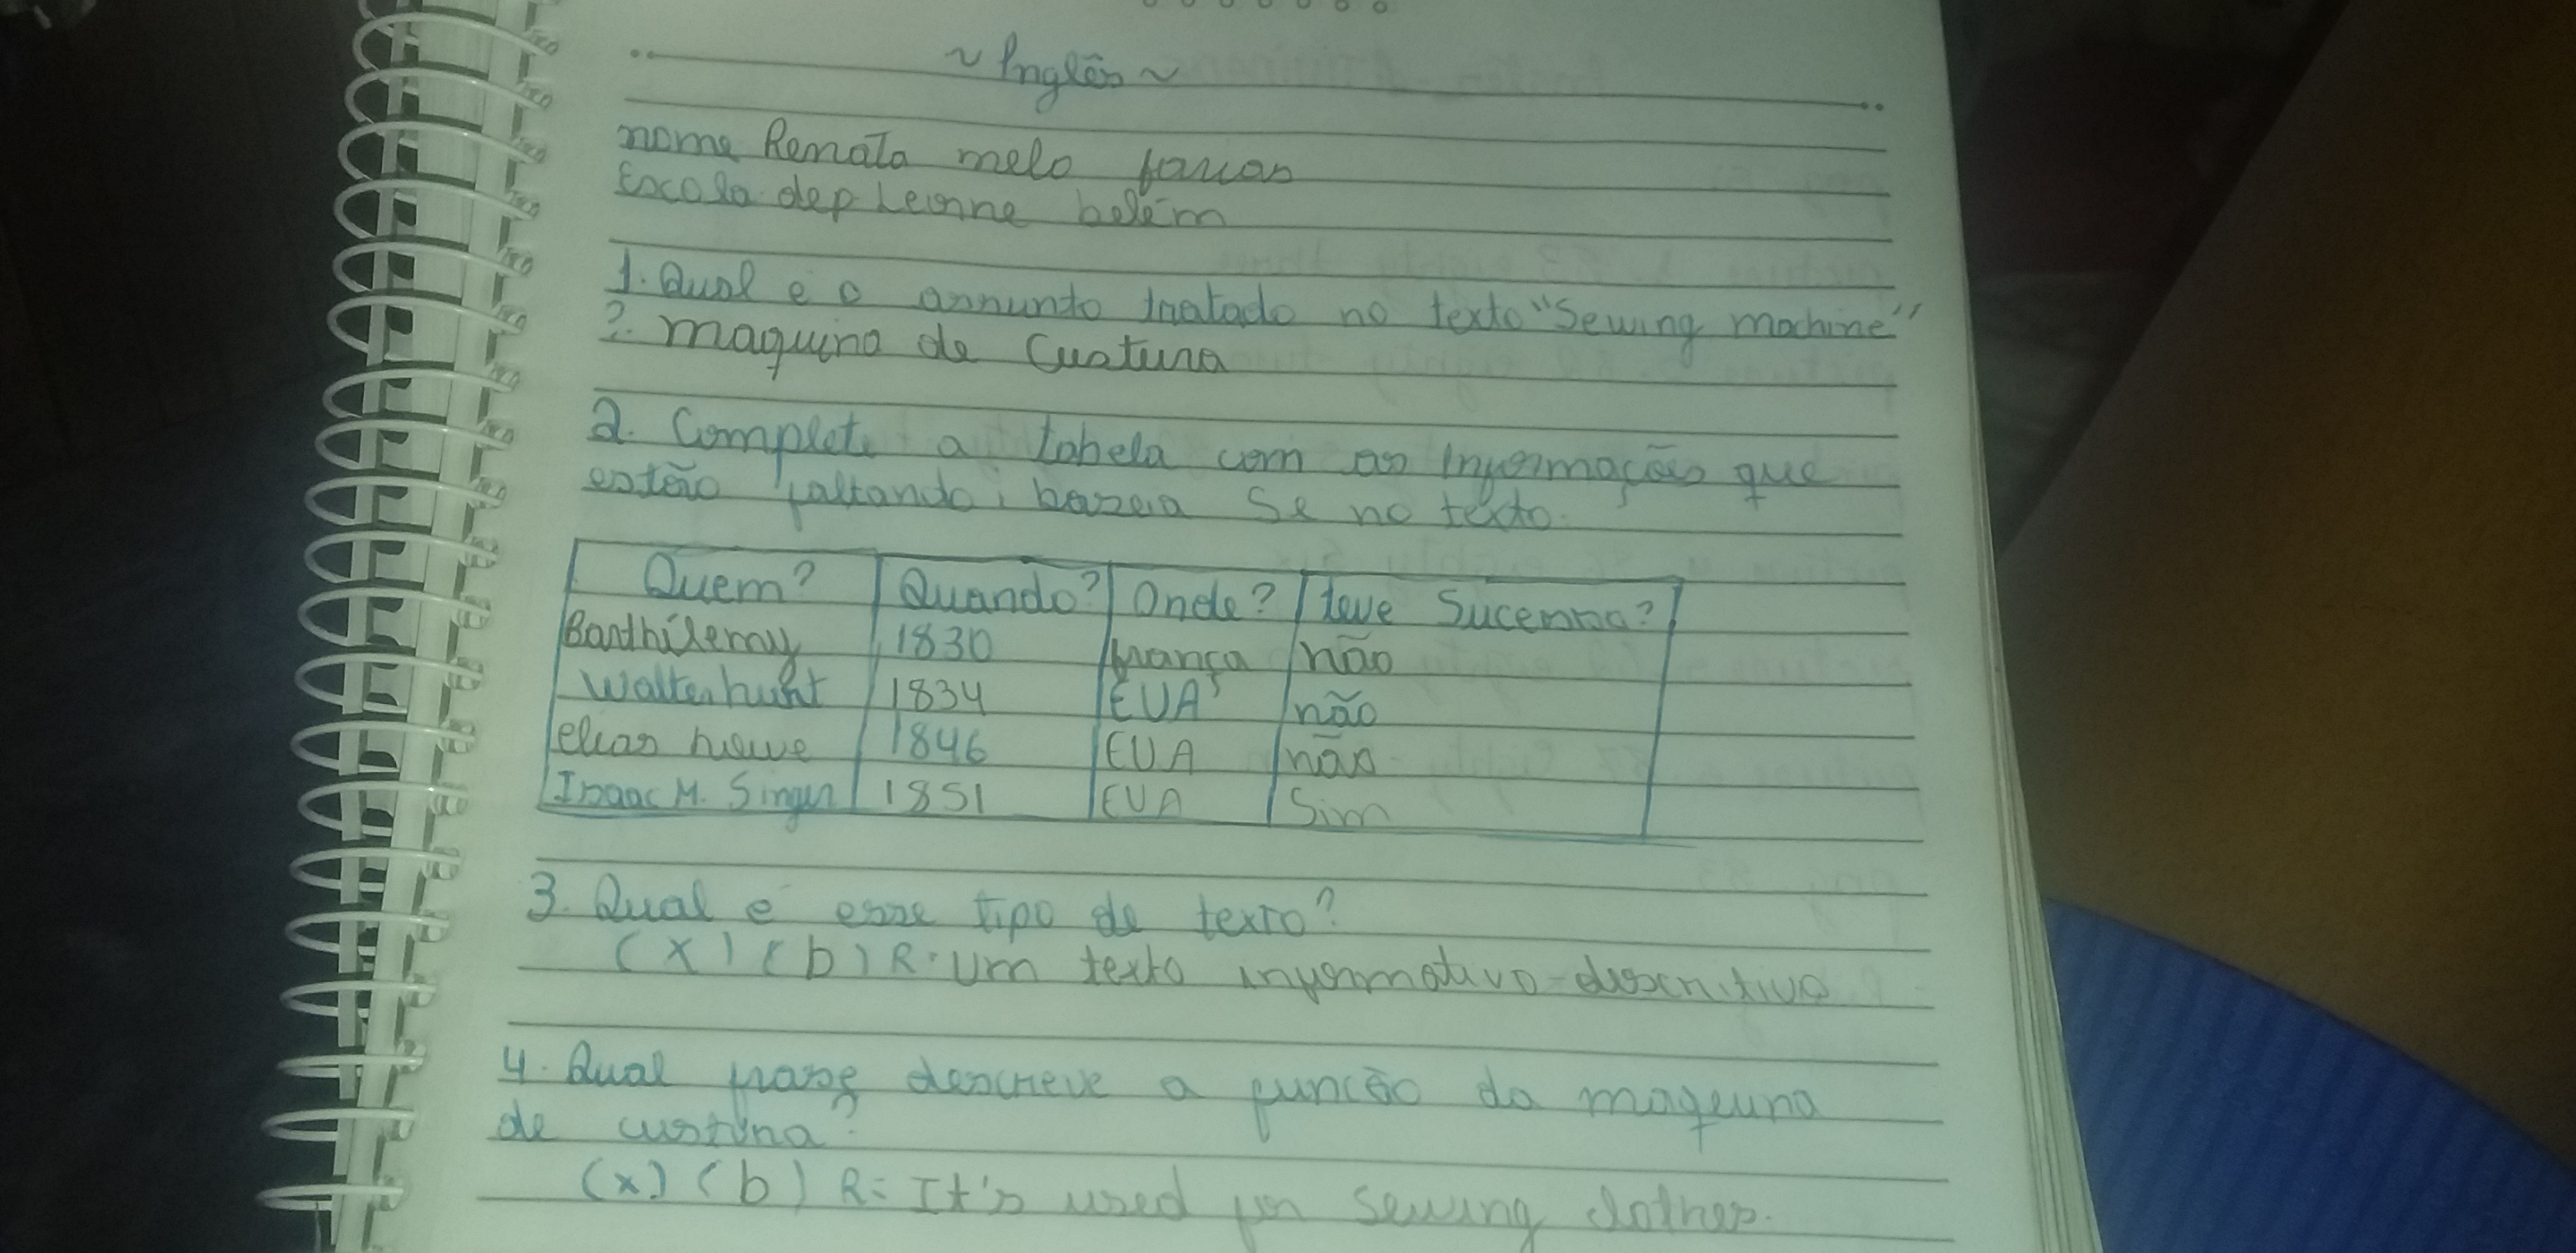 ~ Inglês ~
nome Renata melo farias
Escola dep Leorne belém
1. Qual e o assunto tratado no texto "Sewing machine"
?. maquina de Custura
2. Complete a tabela com as Informações que
estão faltando, bazeia Se no texto.
Quem? Quando? Onde? teve Sucesso?
Barthílemy 1830 frança não
Walter hunt 1834 EUA não
elias howe 1846 EUA não
Isaac M. Singer 1851 EUA Sim
3. Qual e esse tipo de texto?
(X) (b) R. Um texto informativo-descritivo
4. Qual frase descreve a funcão da maquina
de custura?
(x) (b) R: It's used for Sewing clothes.